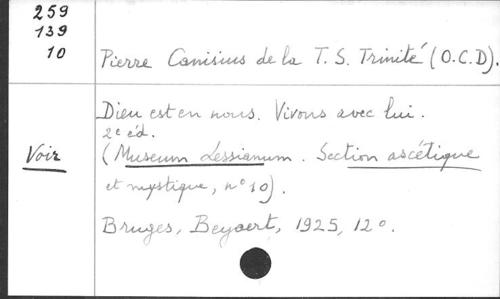 259
139
10
Pierre Canisius de la T. S. Trinité (O.C.D).
Dieu est en nous. Vivons avec lui.
2e éd.
Voir
(Museum Lessianum. Section ascétique
et mystique, n° 10).
Bruges, Beyaert, 1925, 12°.